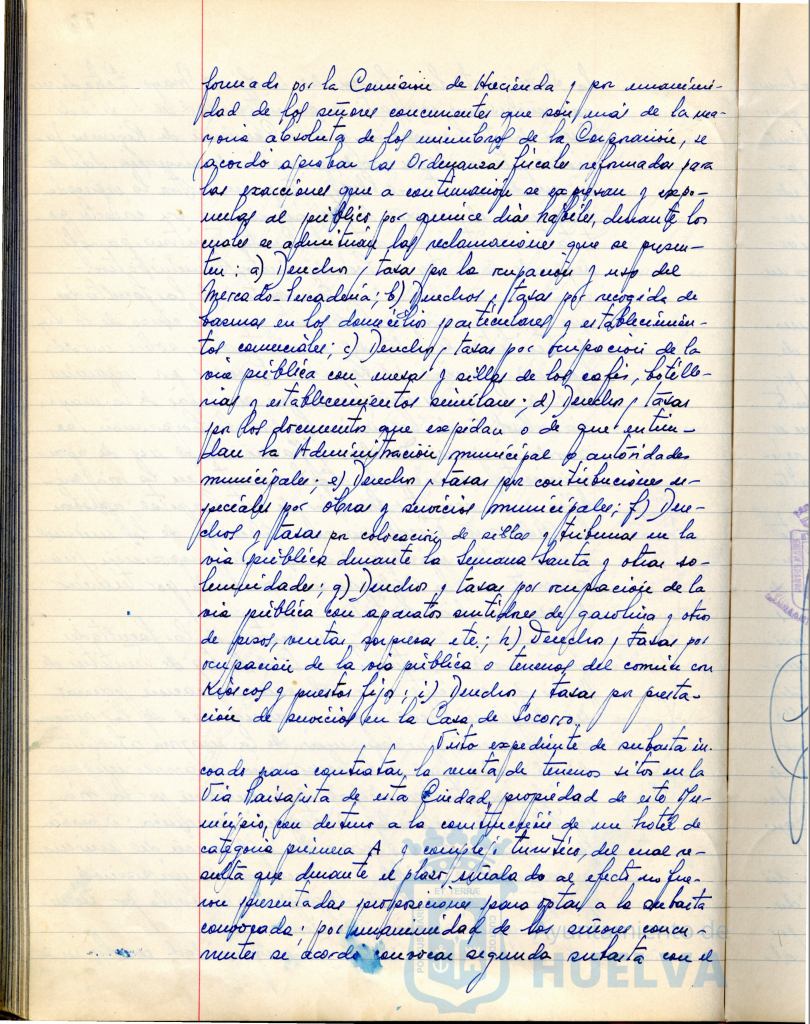 formado por la Comisión de Hacienda y por unanimi-
dad de los señores concurrentes que son más de la ma-
yoría absoluta de los miembros de la Corporación, se
acordó aprobar las Ordenanzas fiscales reformadas para
las exacciones que a continuación se expresan y expo-
nerlas al público por quince días hábiles, durante los
cuales se admitirán las reclamaciones que se presen-
ten: a) Derechos y tasas por la ocupación y uso del
Mercado-Pescadería; b) Derechos y tasas por recogida de
basuras en los domicilios particulares y establecimien-
tos comerciales; c) Derechos y tasas por ocupación de la
vía pública con mesas y sillas de los cafés, botille-
rías y establecimientos similares; d) Derechos y tasas
por los documentos que expidan o de que entien-
dan la Administración municipal o autoridades
municipales; e) Derechos y tasas por contribuciones es-
peciales por obras y servicios municipales; f) Dere-
chos y tasas por colocación de sillas y tribunas en la
vía pública durante la Semana Santa y otras so-
lemnidades; g) Derechos y tasas por ocupación de la
vía pública con aparatos surtidores de gasolina y otros
de pesos, ventas, sorpresas etc.; h) Derechos y tasas por
ocupación de la vía pública o terrenos del común con
Kioscos y puestos fijos; i) Derechos y tasas por presta-
ción de servicios en la Casa de Socorro.
Visto expediente de subasta in-
coado para contratar la venta de terrenos sitos en la
Vía Paisajista de esta Ciudad, propiedad de este Mu-
nicipio, con destino a la construcción de un hotel de
categoría primera A y complejo turístico, del cual re-
sulta que durante el plazo señalado al efecto no fue-
ron presentadas proposiciones para optar a la subasta
convocada; por unanimidad de los señores concu-
rrentes se acordó convocar segunda subasta con el
Ayuntamiento de
HUELVA